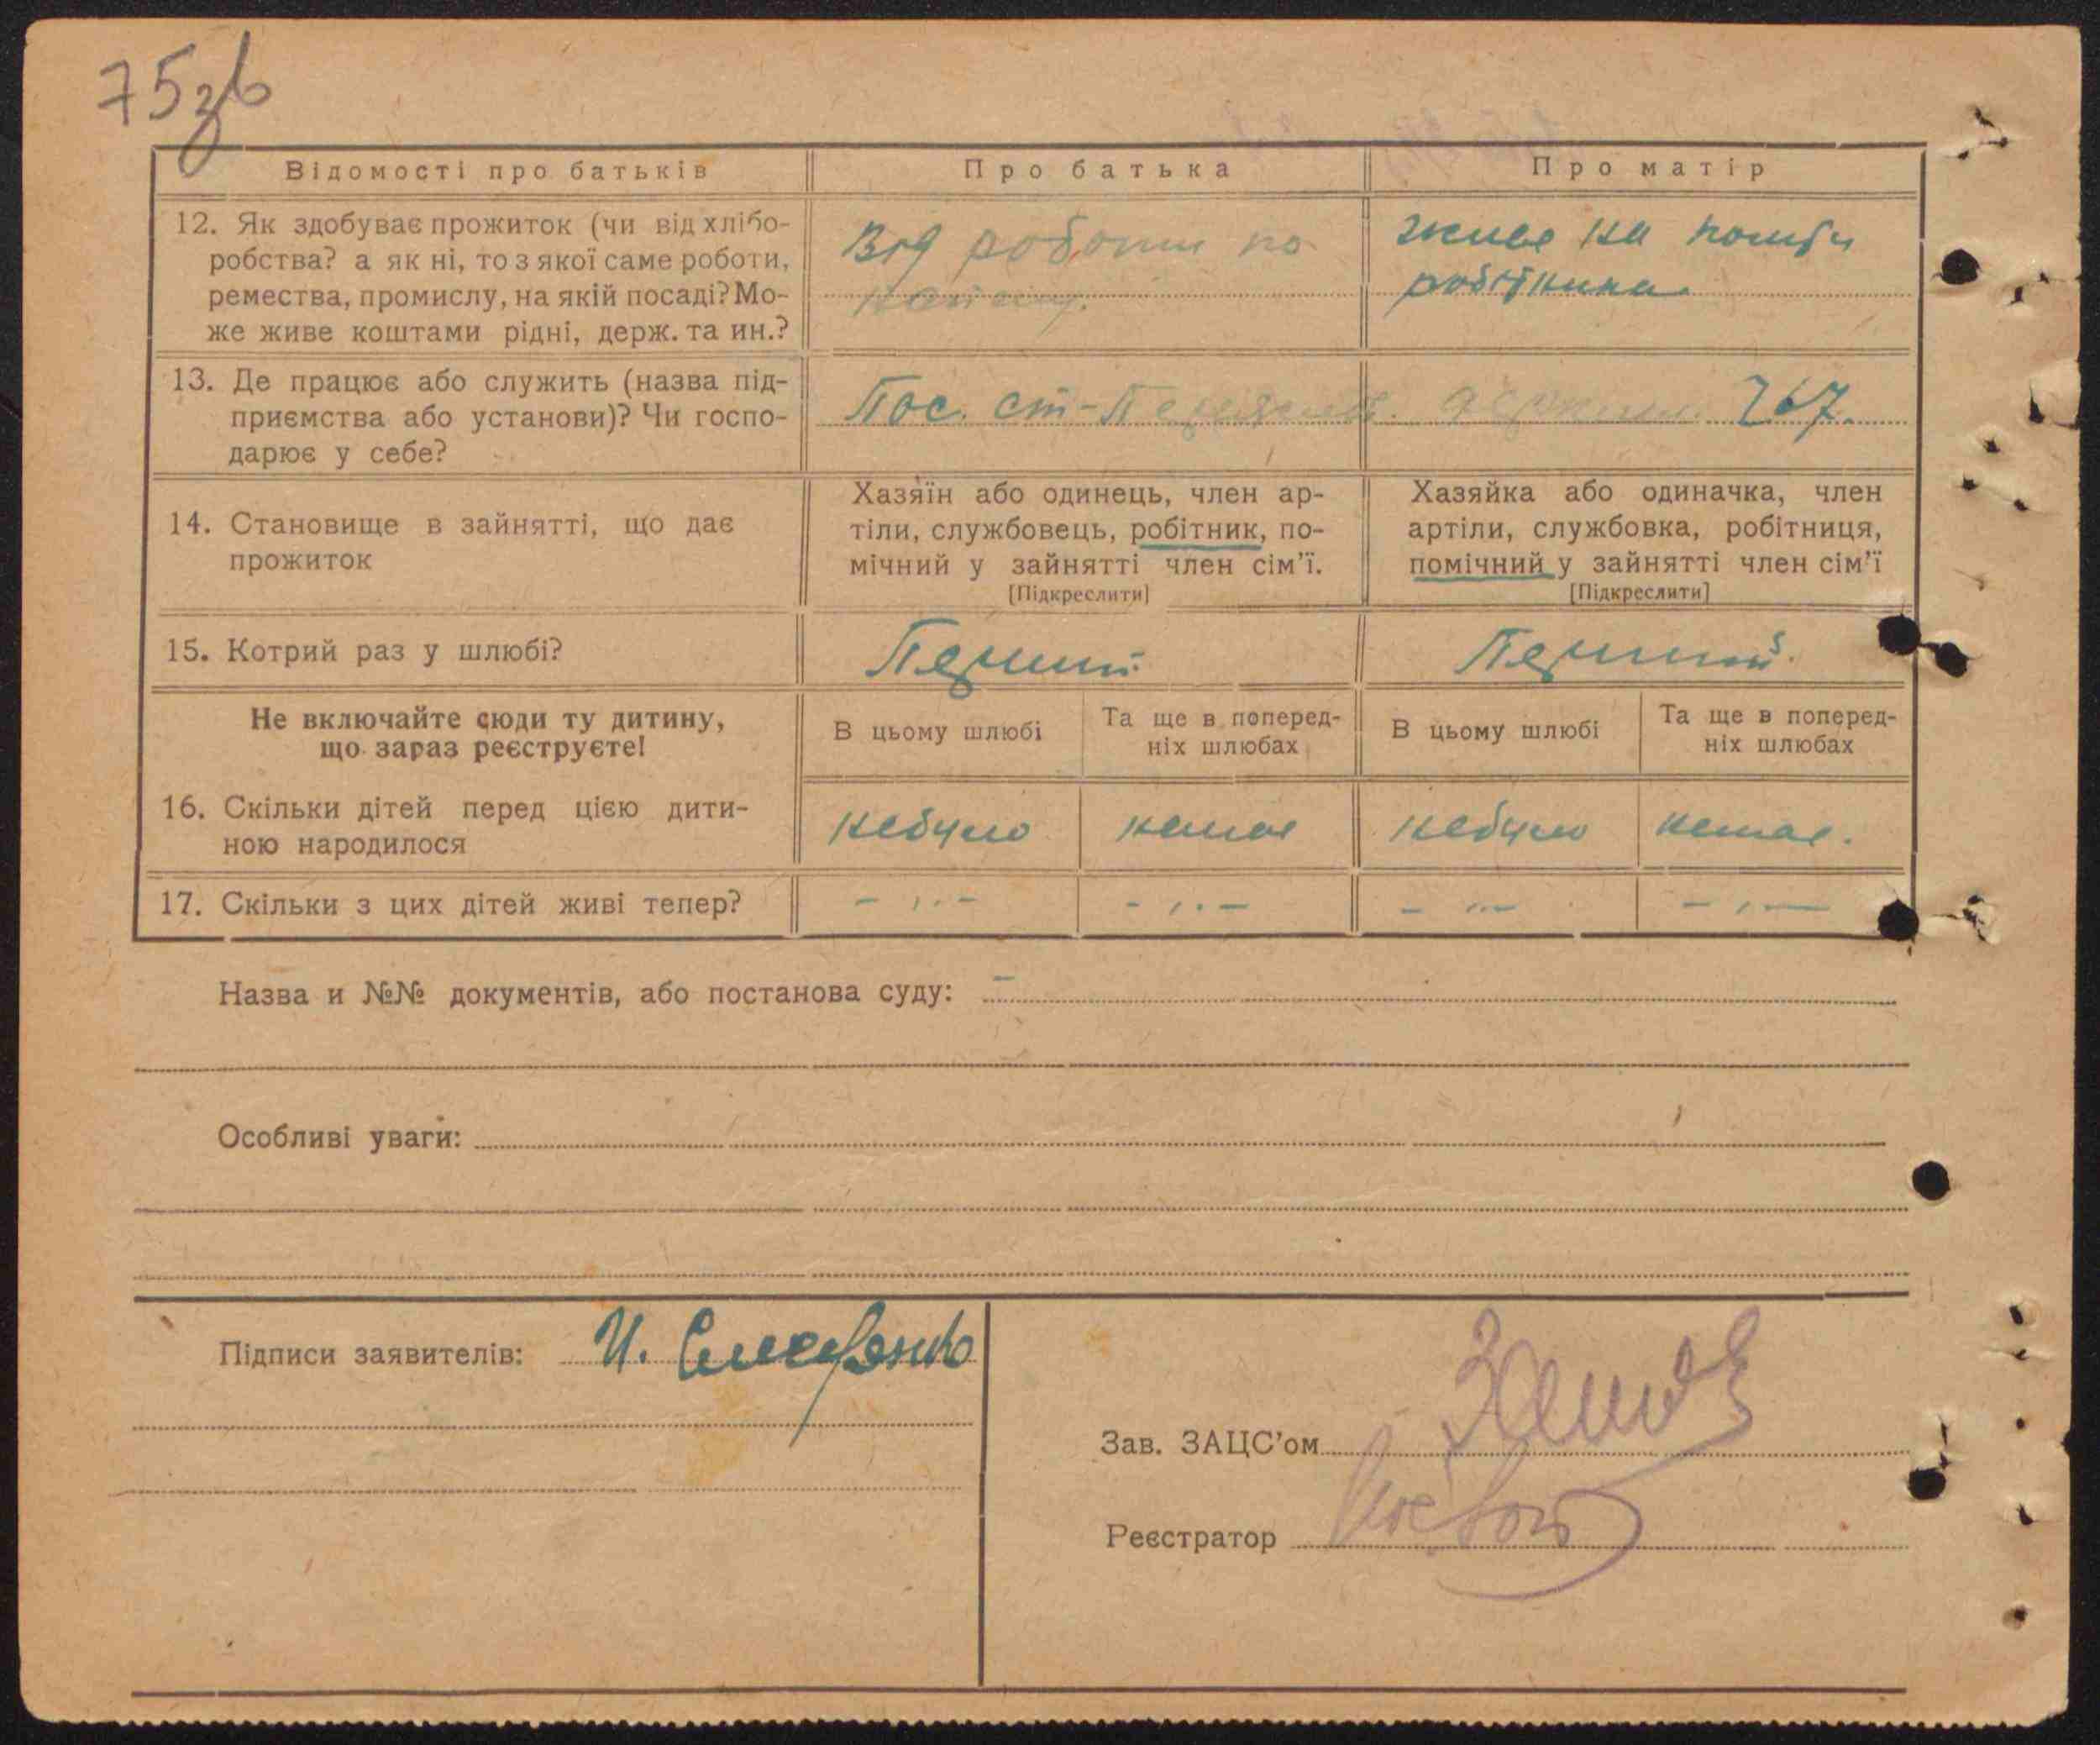 75зв
Відомості про батьків
Про батька
Про матір
12. Як здобуває прожиток (чи від хлібо-
робства? а як ні, то з якої саме роботи,
ремества, промислу, на якій посаді? Мо-
же живе коштами рідні, держ. та ин.?
Від роботи по
живе на
робітника
13. Де працює або служить (назва під-
приємства або установи)? Чи госпо-
дарює у себе?
Пос. ст- 267.
14. Становище в зайнятті, що дає
прожиток
Хазяїн або одинець, член ар-
тіли, службовець, робітник, по-
мічний у зайнятті член сім'ї.
[Підкреслити]
Хазяйка або одиначка, член
артіли, службовка, робітниця,
помічний у зайнятті член сім'ї
[Підкреслити]
15. Котрий раз у шлюбі?
Перший
Перший.
Не включайте сюди ту дитину,
що зараз реєструєте!
В цьому шлюбі
Та ще в поперед-
ніх шлюбах
В цьому шлюбі
Та ще в поперед-
ніх шлюбах
16. Скільки дітей перед цією дити-
ною народилося
небуло
немає
небуло
немає.
17. Скільки з цих дітей живі тепер?
Назва и №№ документів, або постанова суду: –
Особливі уваги:
Підписи заявителів: И.
Зав. ЗАЦС'ом
Реєстратор